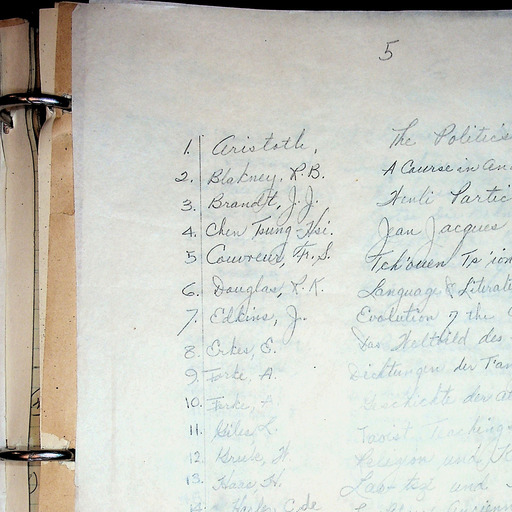 5
1. Aristotle, The Politics
2. Blakney, R.B. A Course in
3. Brandt, J.J. Wenli Partic
4. Chen Tsung Hsi. Jean Jacques
5 Couvreur, F.S. Tch'ouen Ts'iou
6. Douglas, R.K. Language & Literat
7. Edkins, J. Evolution of the
8. Erkes, E. Das Weltbild des
9. Forke, A. Dichtungen der T'an
10. Forke, A. Geschichte der
11. Giles, L. Taoist Teachings
12. Grube, W. Religion und
13. Haas, H. Lao-tzi und
14. Harlez, C. de